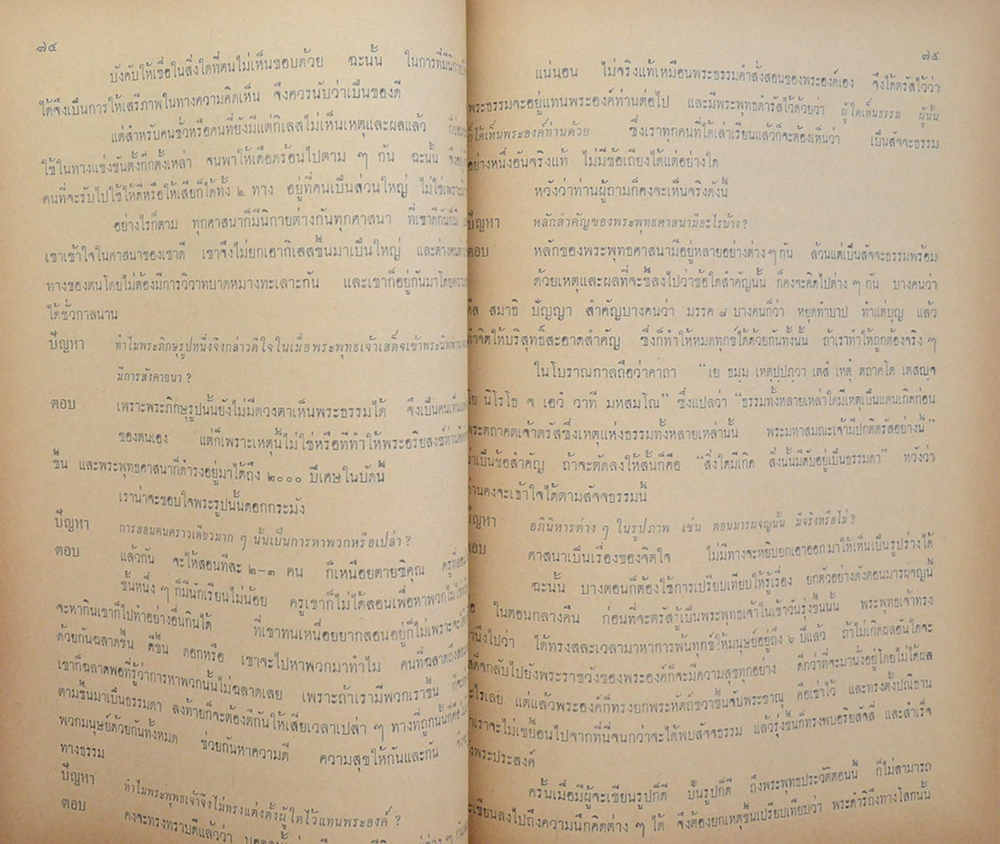 ๗๔
บังคับให้เชื่อในสิ่งใดที่ตนไม่เห็นชอบด้วย ฉะนั้น ในการที่มีนิกาย
ได้จึงเป็นการให้เสรีภาพในทางความคิดเห็น จึงควรนับว่าเป็นของดี
แต่สำหรับคนชั่วหรือคนที่ยังมีแต่กิเลสไม่เห็นเหตุและผลแล้ว
ใช้ในทางแข่งขันตั้งก๊กตั้งเหล่า จนพาให้เดือดร้อนไปตาม ๆ กัน ฉะนั้น
คนที่จะรับไปใช้ให้ดีหรือให้เสียก็ได้ทั้ง ๒ ทาง อยู่ที่คนเป็นส่วนใหญ่ ไม่ใช่เพราะ
อย่างไรก็ตาม ทุกศาสนาก็มีนิกายต่างกันทุกศาสนา ที่เขาดีกันก็มี
เขาเข้าใจในศาสนาของเขาดี เขาจึงไม่ยกเอากิเลสขึ้นมาเป็นใหญ่ และต่างคน
ทางของตนโดยไม่ต้องมีการวิวาทบาดหมางทะเลาะกัน และเขาก็อยู่กันมาโดย
ได้ชั่วกาลนาน
ปัญหา ทำไมพระภิกษุรูปหนึ่งจึงกล่าวดีใจในเมื่อพระพุทธเจ้าเสด็จเข้าพระนิพพาน
มีการสังคายนา ?
ตอบ เพราะพระภิกษุรูปนั้นยังไม่มีดวงตาเห็นพระธรรมได้ จึงเป็นคน
ของตนเอง แต่ก็เพราะเหตุนี้ไม่ใช่หรือที่ทำให้พระอริยสงฆ์ท่าน
ขึ้น และพระพุทธศาสนาก็ดำรงอยู่มาได้ถึง ๒๐๐๐ ปีเศษในบัดนี้
เราน่าจะขอบใจพระรูปนั้นดอกกระมัง
ปัญหา การสอนคนคราวเดียวมาก ๆ นั้นเป็นการหาพวกหรือเปล่า ?
ตอบ แล้วกัน จะให้สอนทีละ ๒-๓ คน ก็เหนื่อยตายซิคุณ ครูที่สอน
ชั้นหนึ่ง ๆ ก็มีนักเรียนไม่น้อย ครูเขาก็ไม่ได้สอนเพื่อหาพวกไม่ใช่
จะหากินเขาก็ไปทำอย่างอื่นกินได้ ที่เขาทนเหนื่อยยากสอนอยู่ก็ไม่เพราะจะ
ด้วยกันฉลาดขึ้น ดีขึ้น ดอกหรือ เขาจะไปหาพวกมาทำไม คนที่ฉลาดถึง
เขาก็ฉลาดพอที่รู้ว่าการหาพวกนั้นไม่ฉลาดเลย เพราะถ้าเรามีพวกเราขึ้น
ตามขึ้นมาเป็นธรรมดา ลงท้ายก็จะต้องตีกันให้เสียเวลาเปล่า ๆ ทางที่ถูกนั้นก็คือ
พวกมนุษย์ด้วยกันทั้งหมด ช่วยกันหาความดี ความสุขให้กันและกัน
ทางธรรม
ปัญหา ทำไมพระพุทธเจ้าจึงไม่ทรงแต่งตั้งผู้ใดไว้แทนพระองค์ ?
ตอบ คงจะทรงทราบดีแล้วว่า
๗๕
แน่นอน ไม่จริงแท้เหมือนพระธรรมคำสั่งสอนของพระองค์เอง จึงได้ตรัสไว้ว่า
พระธรรมจะอยู่แทนพระองค์ท่านต่อไป และมีพระพุทธดำรัสไว้ด้วยว่า ผู้ใดเห็นธรรม ผู้นั้น
ก็ได้เห็นพระองค์ท่านด้วย ซึ่งเราทุกคนที่ได้เล่าเรียนแล้วก็จะต้องเห็นว่า เป็นสัจจะธรรม
อย่างหนึ่งอันจริงแท้ ไม่มีข้อเถียงได้แต่อย่างใด
หวังว่าท่านผู้ถามก็คงจะเห็นจริงดังนี้
ปัญหา หลักสำคัญของพระพุทธศาสนามีอะไรบ้าง ?
ตอบ หลักของพระพุทธศาสนามีอยู่หลายอย่างต่าง ๆ กัน ล้วนแต่เป็นสัจจะธรรมพร้อม
ด้วยเหตุและผลที่จะชี้ลงไปว่าข้อใดสำคัญนั้น ก็คงจะคิดไปต่าง ๆ กัน บางคนว่า
ศีล สมาธิ ปัญญา สำคัญบางคนว่า มรรค ๘ บางคนก็ว่า หยุดทำบาป ทำแต่บุญ แล้ว
ทำจิตให้บริสุทธิ์สะอาดสำคัญ ซึ่งก็ทำให้หมดทุกข์ได้ด้วยกันทั้งนั้น ถ้าเราทำให้ถูกต้องจริง ๆ
ในโบราณกาลถือว่าคาถา “เย ธมฺม เหตุปฺปภวา เตสํ เหตุํ ตถาคโต เตสญฺจ
โย นิโรโธ จ เอวํ วาที มหสมโณ” ซึ่งแปลว่า “ธรรมทั้งหลายเหล่าใดมีเหตุเป็นแดนเกิดก่อน
พระตถาคตเจ้าตรัสซึ่งเหตุแห่งธรรมทั้งหลายเหล่านั้น พระมหาสมณะเจ้ามีปกติตรัสอย่างนี้”
ว่าเป็นข้อสำคัญ ถ้าจะตัดลงให้สั้นก็คือ “สิ่งใดมีเกิด สิ่งนั้นมีดับอยู่เป็นธรรมดา” หวังว่า
ท่านคงจะเข้าใจได้ตามสัจจธรรมนี้
ปัญหา อภินิหารต่าง ๆ ในรูปภาพ เช่น ตอนมารผจญนั้น มีจริงหรือไม่ ?
ตอบ ศาสนาเป็นเรื่องของจิตใจ ไม่มีทางจะหยิบยกเอาออกมาให้เห็นเป็นรูปร่างได้
ฉะนั้น บางตอนก็ต้องใช้การเปรียบเทียบให้รู้เรื่อง ยกตัวอย่างดังตอนมารผจญนี้
คือ ในตอนกลางคืน ก่อนที่จะตรัสรู้เป็นพระพุทธเจ้าในเช้าวันรุ่งขึ้นนั้น พระพุทธเจ้าทรง
คำนึงไปว่า ได้ทรงสละเวลามาหาการพ้นทุกข์ให้มนุษย์อยู่ถึง ๖ ปีแล้ว ถ้าไม่เกิดผลอันใดจะ
เสด็จกลับไปยังพระราชวังของพระองค์ก็จะมีความสุขทุกอย่าง ดีกว่าที่จะมานั่งอยู่โดยไม่ได้ผล
อะไรเลย แต่แล้วพระองค์ก็ทรงยกพระหัตถ์ขวาขึ้นจับพระชาณุ คือเข่าไว้ และทรงตั้งปณิธาน
ว่าเราจะไม่เขยื้อนไปจากที่นี่จนกว่าจะได้พบสัจจธรรม แล้วรุ่งขึ้นก็ทรงพบอริยสัจสี่ และสำเร็จ
ดังพระประสงค์
ครั้นเมื่อมีผู้จะเขียนรูปก็ดี ปั้นรูปก็ดี ถึงพระพุทธประวัติตอนนี้ ก็ไม่สามารถ
จะเขียนลงไปถึงความนึกคิดต่าง ๆ ได้ จึงต้องยกเหตุขึ้นเปรียบเทียบว่า พระดำริถึงทางโลกนั้น